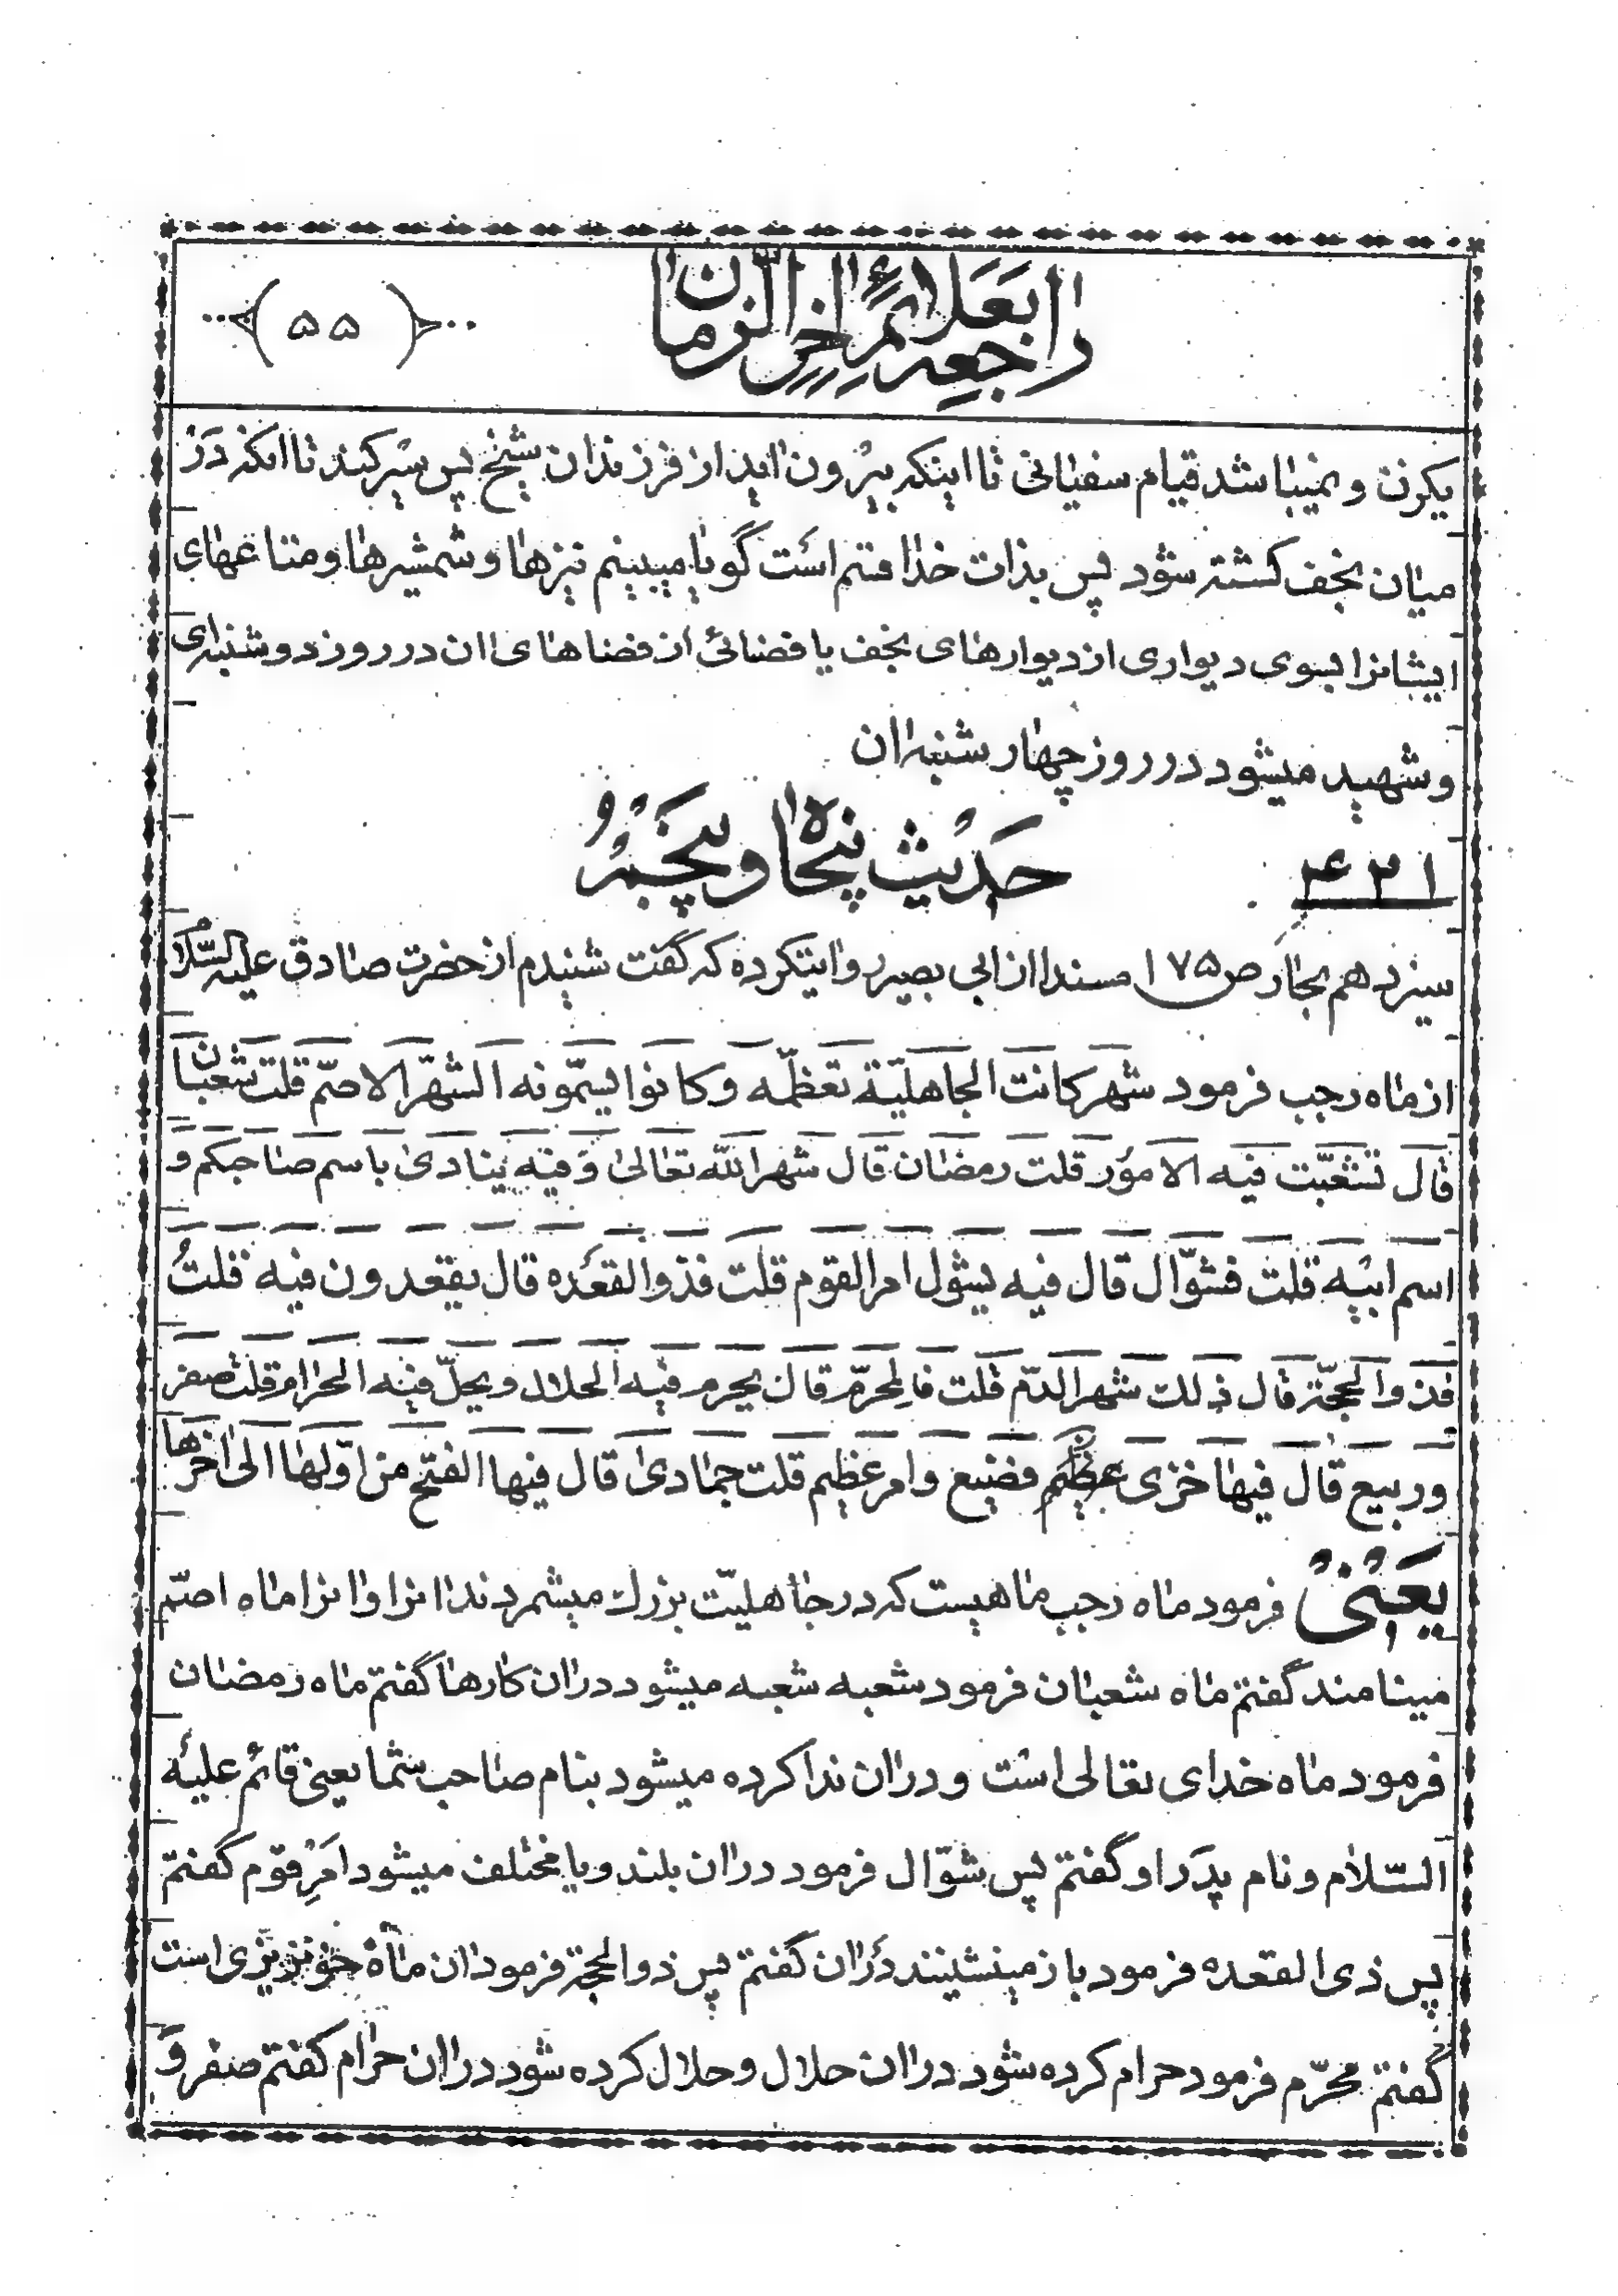 راجعه بعلائم اخر الزمان
(۵۵)
بگرفت و نمیباشد قیام سفیانی تا اینکه بیرون اید از فرزندان شیخ پس سیر کند تا انکه در
میان نجف کشته شود پس بذات خدا قسم است گویا میبینم نیزها و شمشیرها و متاعهای
ایشانرا بسوی دیواری از دیوارهای نجف یا فضائی از فضاهای ان در روز دوشنبه‌ای
و شهید میشود در روز چهار شنبه ان
۴۲۱ حدیث پنجاه و پنجم
سیزدهم بحار ص ۱۷۵ مسندا از ابی بصیر روایتکرده که گفت شنیدم از حضرت صادق علیه السّلام
از ماه رجب فرمود شهر کانت الجاهلیّة تعظّمه و کانوا یسمّونه الشهر الاصمّ قلت شعبان
قال تشعّبت فیه الامور قلت رمضان قال شهر الله تعالی و فیه ینادی باسم صاحبکم و
اسم ابیه قلت فشوّال قال فیه یشول امر القوم قلت فذو القعده قال یقعدون فیه قلت
فذو الحجّة قال ذلک شهر الدّم قلت فالمحرّم قال یحرم فیه الحلال و یحلّ فیه الحرام قلت صفر
و ربیع قال فیها خزی عظیم فضیع و امر عظیم قلت جمادی قال فیها الفتح من اوّلها الی اخرها
یعنی فرمود ماه رجب ماهیست که در جاهلیّت بزرک میشمردند انرا و انرا ماه اصمّ
مینامند گفتم ماه شعبان فرمود شعبه شعبه میشود در ان کارها گفتم ماه رمضان
فرمود ماه خدای تعالی است و در ان ندا کرده میشود بنام صاحب شما یعنی قائم علیه
السّلام و نام پدر او گفتم پس شوّال فرمود در ان بلند و یا مختلف میشود امر قوم گفتم
پس ذی القعده فرمود باز مینشینند در ان گفتم پس ذو الحجة فرمود ان ماه خونریزی است
گفتم محرّم فرمود حرام کرده شود در ان حلال و حلال کرده شود در ان حرام گفتم صفر و